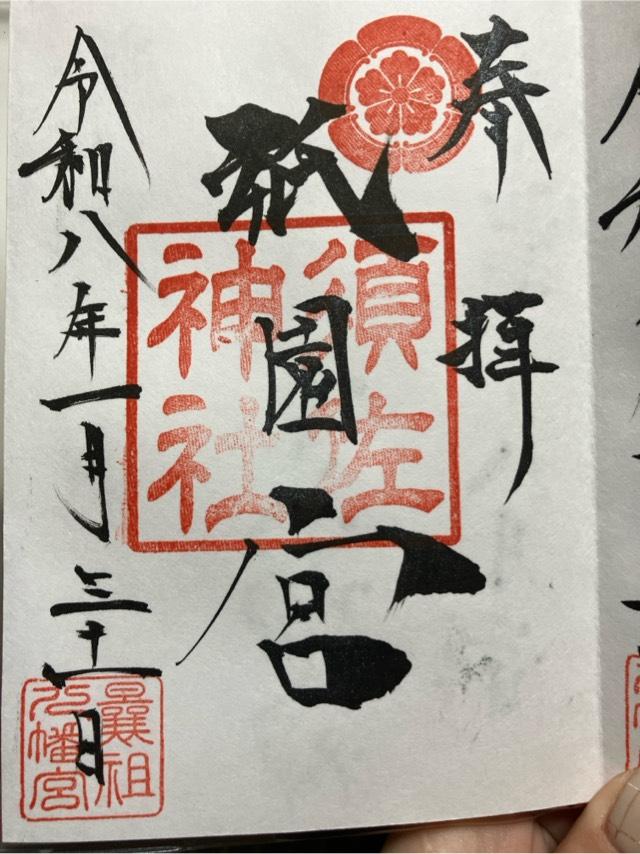 奉拝
祇園宮
須佐
神社
令和八年一月三十一日
曩祖
八幡宮